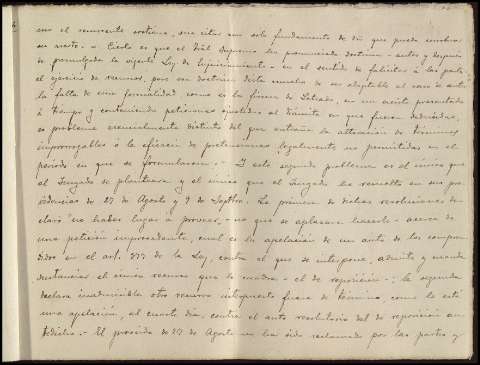 como el recurrente sostiene, sin citar un solo fundamento de dro que pueda enervar
su aserto.- Cierto es que el Trbal Supremo ha pronunciado doctrina - antes y después
de promulgada la vigente Ley de Enjuiciamiento - en el sentido de facilitar á las partes
el ejercicio de recursos, pero esa doctrina dista mucho de ser adaptable al caso de autos
la falta de una formalidad como es la firma de Letrado, en un escrito presentado
á tiempo y conteniendo peticiones ajustadas al trámite en que fueron deducidas,
es problema esencialmente distinto del que entraña la alteración de términos
improrrogables ó la eficacia de pretensiones legalmente no permitidas en el
periodo en que se formularon.- Y este segundo problema es el único que
el Juzgado se planteara y el único que el Juzgado ha resuelto en sus pro
videncias de 27 de Agosto y 9 de Septbre. La primera de dichas resoluciones de
claró "no haber lugar á proveer, - no que se aplazara hacerlo - acerca de
una petición improcedente, cual es la apelación de un auto de los compren
didos en el art. 377 de la Ley, contra el que se interpone, admite y manda
sustanciar el único recurso que le cuadra - el de reposición -; la segunda
declara inadmisible otro recurso interpuesto fuera de término, como lo está
una apelación, al cuarto día, contra el auto resolutorio del de reposición an
tedicho.- El proveido de 27 de Agosto no ha sido reclamado por las partes y